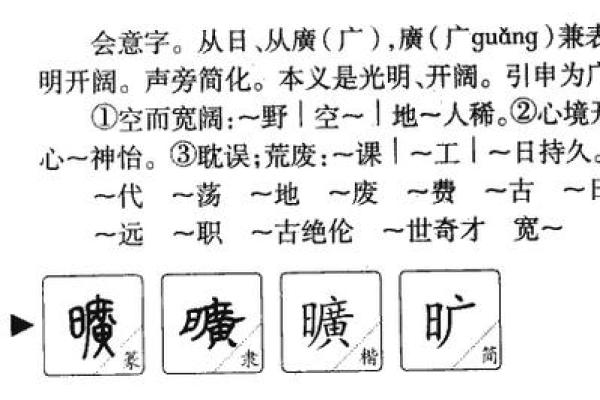 会意字。从日、从廣(广),廣(广guǎng)兼表
明开阔。声旁简化。本义是光明、开阔。引申为广
①空而宽阔:~野|空~|地~人稀。②心境开
心~神怡。③耽误;荒废:~课|~工|~日持久。
~代 ~荡 ~地 ~废 ~费 ~古 ~日
~远 ~职 ~古绝伦 ~世奇才 宽~
▶ 曠篆 曠隶 曠楷 旷简